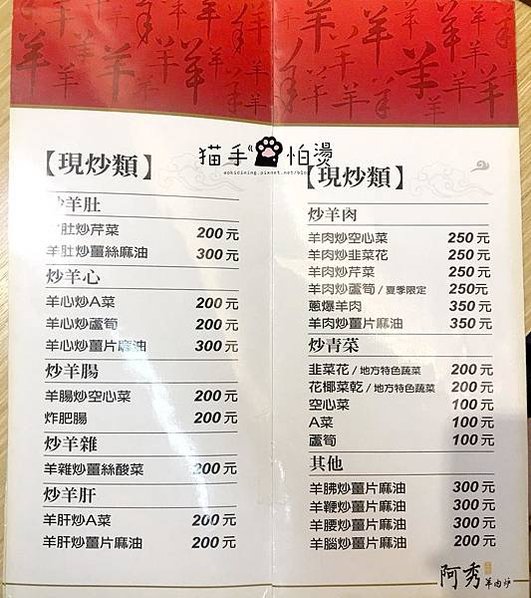 猫手怕燙
【現炒類】
炒羊肚
羊肚炒芹菜 200元
羊肚炒薑絲麻油 300元
炒羊心
羊心炒A菜 200元
羊心炒蘆筍 200元
羊心炒薑片麻油 300元
炒羊腸
羊腸炒空心菜 200元
炸肥腸 200元
炒羊雜
羊雜炒薑絲酸菜 200元
炒羊肝
羊肝炒A菜 200元
羊肝炒薑片麻油 200元
【現炒類】
炒羊肉
羊肉炒空心菜 250元
羊肉炒韭菜花 250元
羊肉炒芹菜 250元
羊肉炒蘆筍/夏季限定 250元
蔥爆羊肉 350元
羊肉炒薑片麻油 350元
炒青菜
韭菜花/地方特色蔬菜 200元
花椰菜乾/地方特色蔬菜 200元
空心菜 100元
A菜 100元
蘆筍 100元
其他
羊胇炒薑片麻油 300元
羊鞭炒薑片麻油 300元
羊腰炒薑片麻油 300元
羊腦炒薑片麻油 200元
阿秀羊肉炉